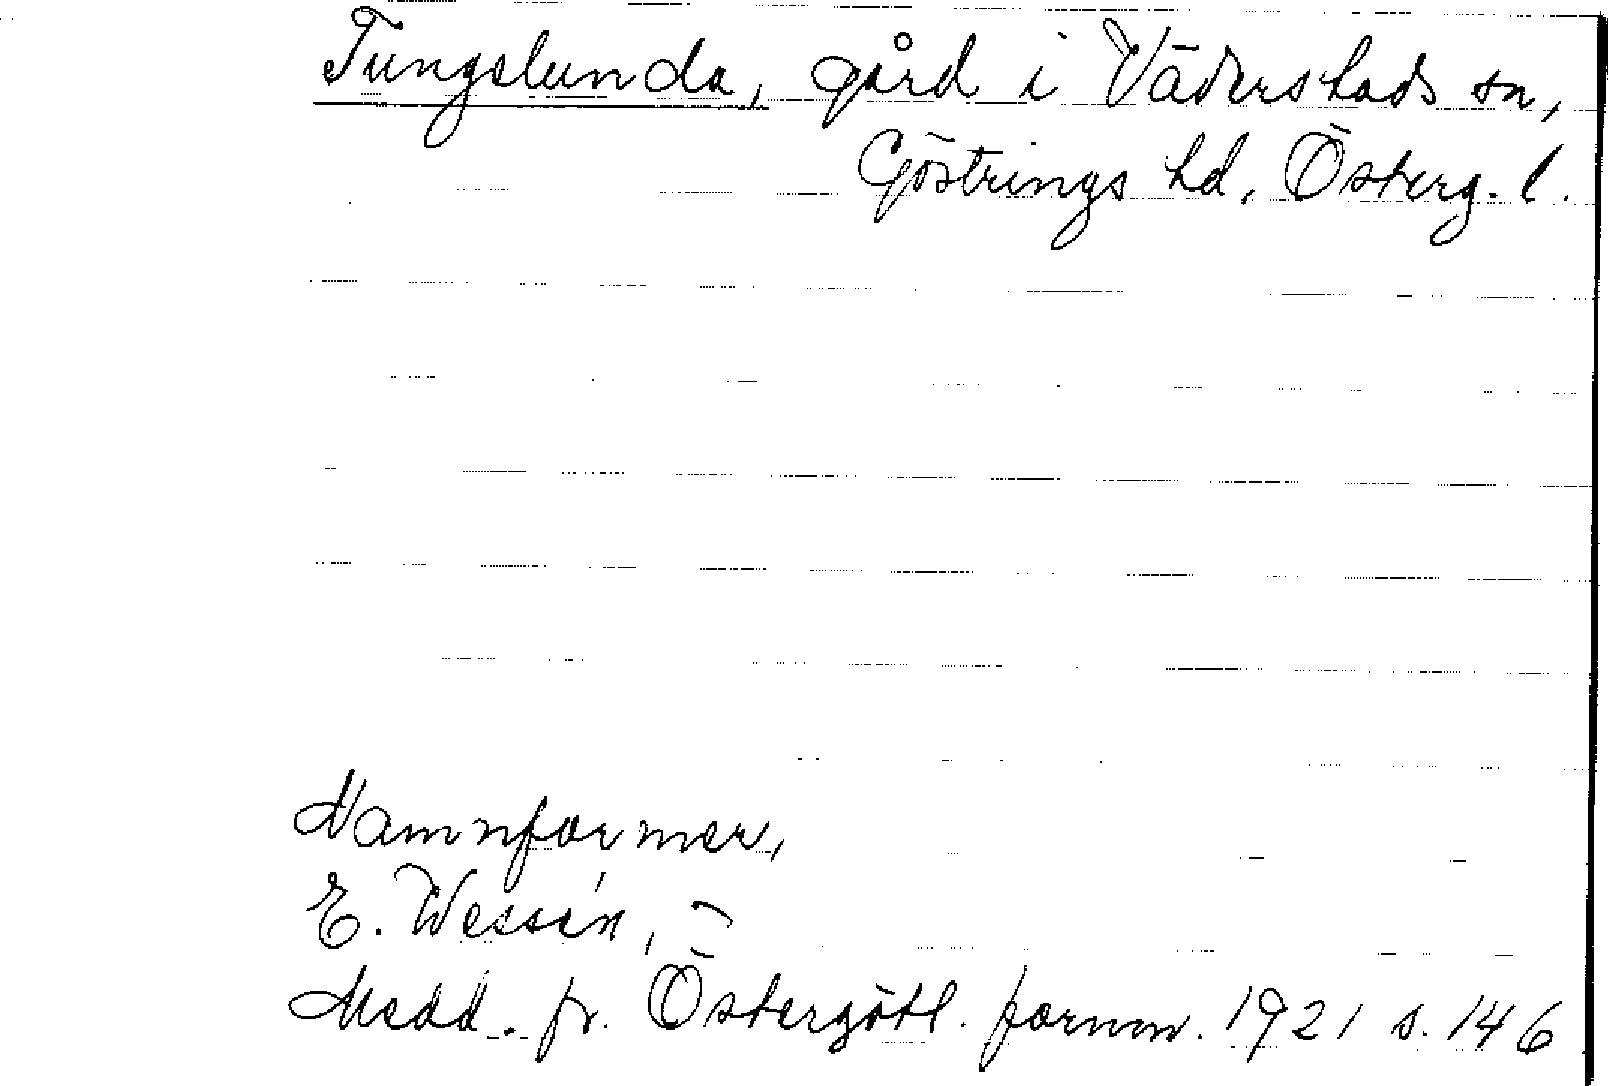 Tungslunda, gård i Väderstads sn,
Göstrings hd, Österg. l.
Namnformer,
E. Wessén,
Medd. fr. Östergötl. fornm. 1921 s. 146